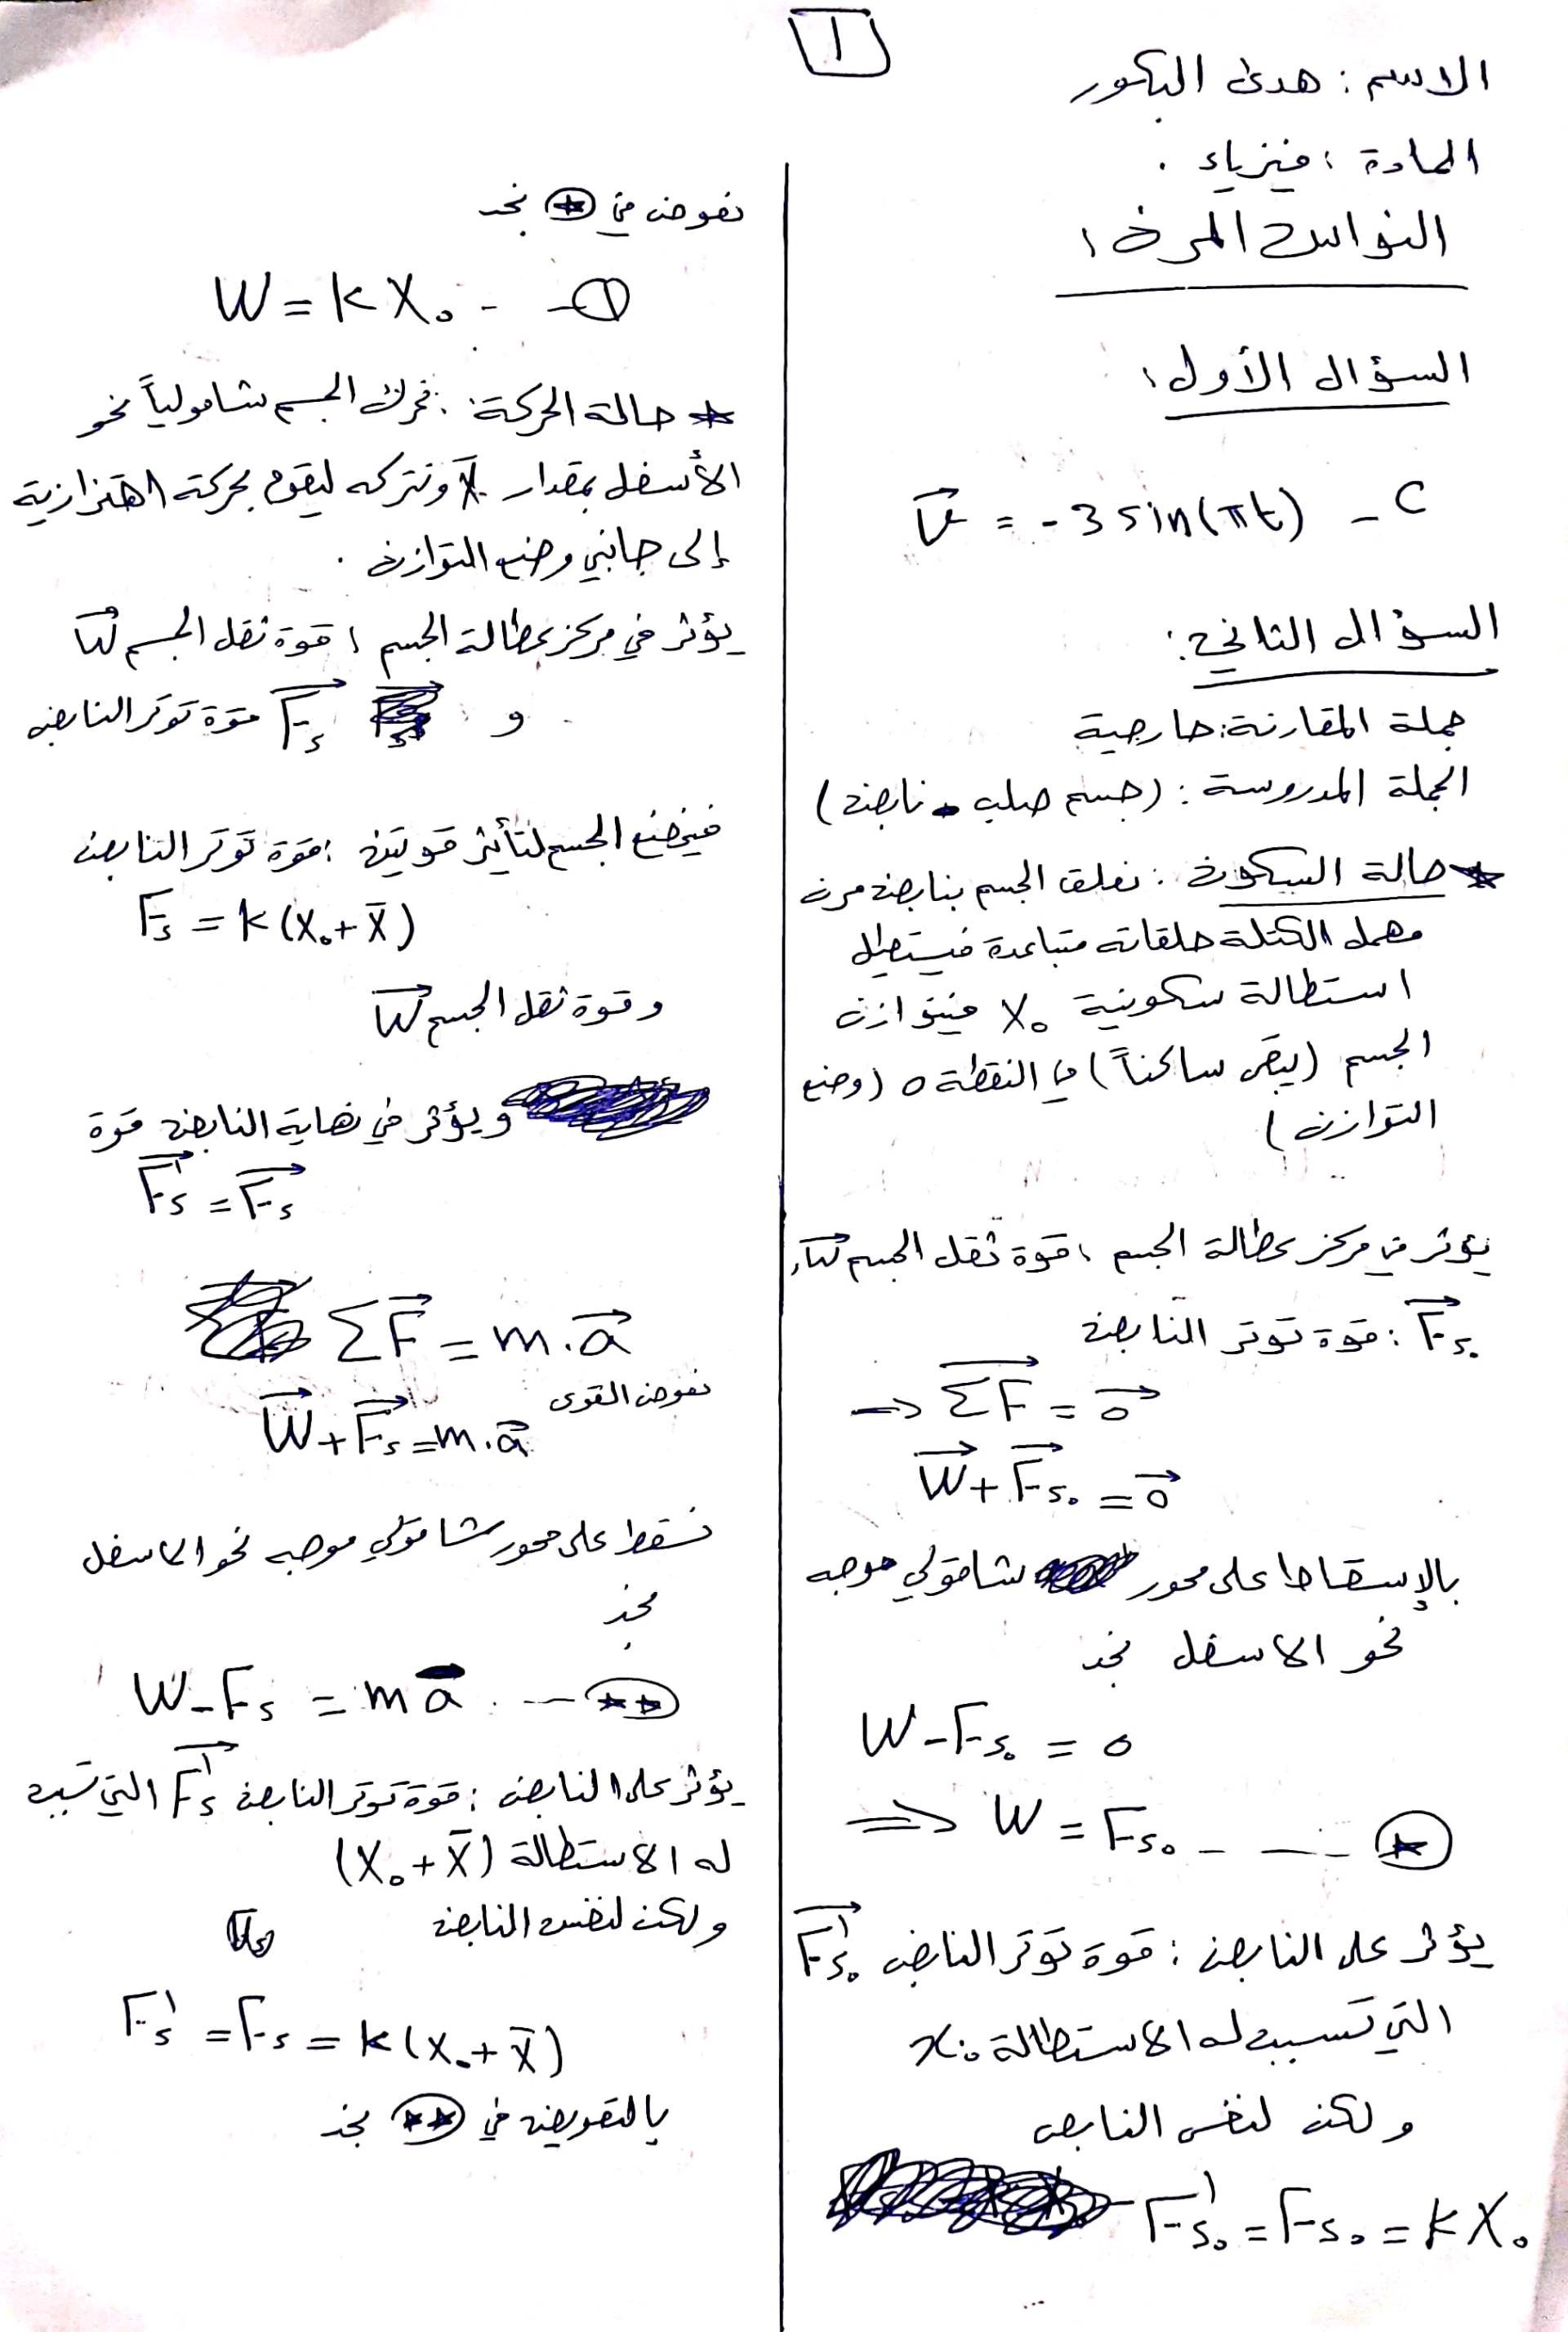 1
الاسم : هدى البكور
المادة : فيزياء .
النواس المرن :
السؤال الأول :
v̄ = -3 sin(πt) - C
السؤال الثاني :
جملة المقارنة : خارجية
الجملة المدروسة : (جسم صلب - نابض)
* حالة السكون : نعلق الجسم بنابض مرن
مهمل الكتلة حلقاته متباعدة فيستطيل
استطالة سكونية X₀ فيتوازن
الجسم (يبقى ساكناً) في النقطة o (وضع
التوازن)
يؤثر في مركز عطالة الجسم : قوة ثقل الجسم W⃗,
F⃗s₀ : قوة توتر النابض
=> ΣF⃗ = 0⃗
W⃗ + F⃗s₀ = 0⃗
بالإسقاط على محور شاقولي موجه
نحو الاسفل نجد
W - Fs₀ = 0
=> W = Fs₀ - - - (*)
يؤثر على النابض : قوة توتر النابض F⃗'s₀
التي تسبب له الاستطالة x₀:
ولكن لنفس النابض
F's₀ = Fs₀ = kX₀
نعوض في (*) نجد
W = kX₀ - - (1)
* حالة الحركة : نحرك الجسم شاقولياً نحو
الأسفل بمقدار x̄ ونتركه ليقوم بحركة اهتزازية
إلى جانبي وضع التوازن .
يؤثر في مركز عطالة الجسم : قوة ثقل الجسم W⃗
و F⃗s قوة توتر النابض
فيخضع الجسم لتأثير قوتين : قوة توتر النابض
Fs = k(X₀ + x̄)
وقوة ثقل الجسم W⃗
ويؤثر في نهاية النابض قوة
F⃗'s = F⃗s
ΣF⃗ = m.a⃗
نعوض القوى
W⃗ + F⃗s = m.a⃗
نسقط على محور شاقولي موجه نحو الاسفل
نجد
W - Fs = m a - - (**)
يؤثر على النابض : قوة توتر النابض F⃗'s التي تسبب
له الاستطالة (X₀ + x̄)
ولكن لنفس النابض
F's = Fs = k(X₀ + x̄)
بالتعويض في (**) نجد